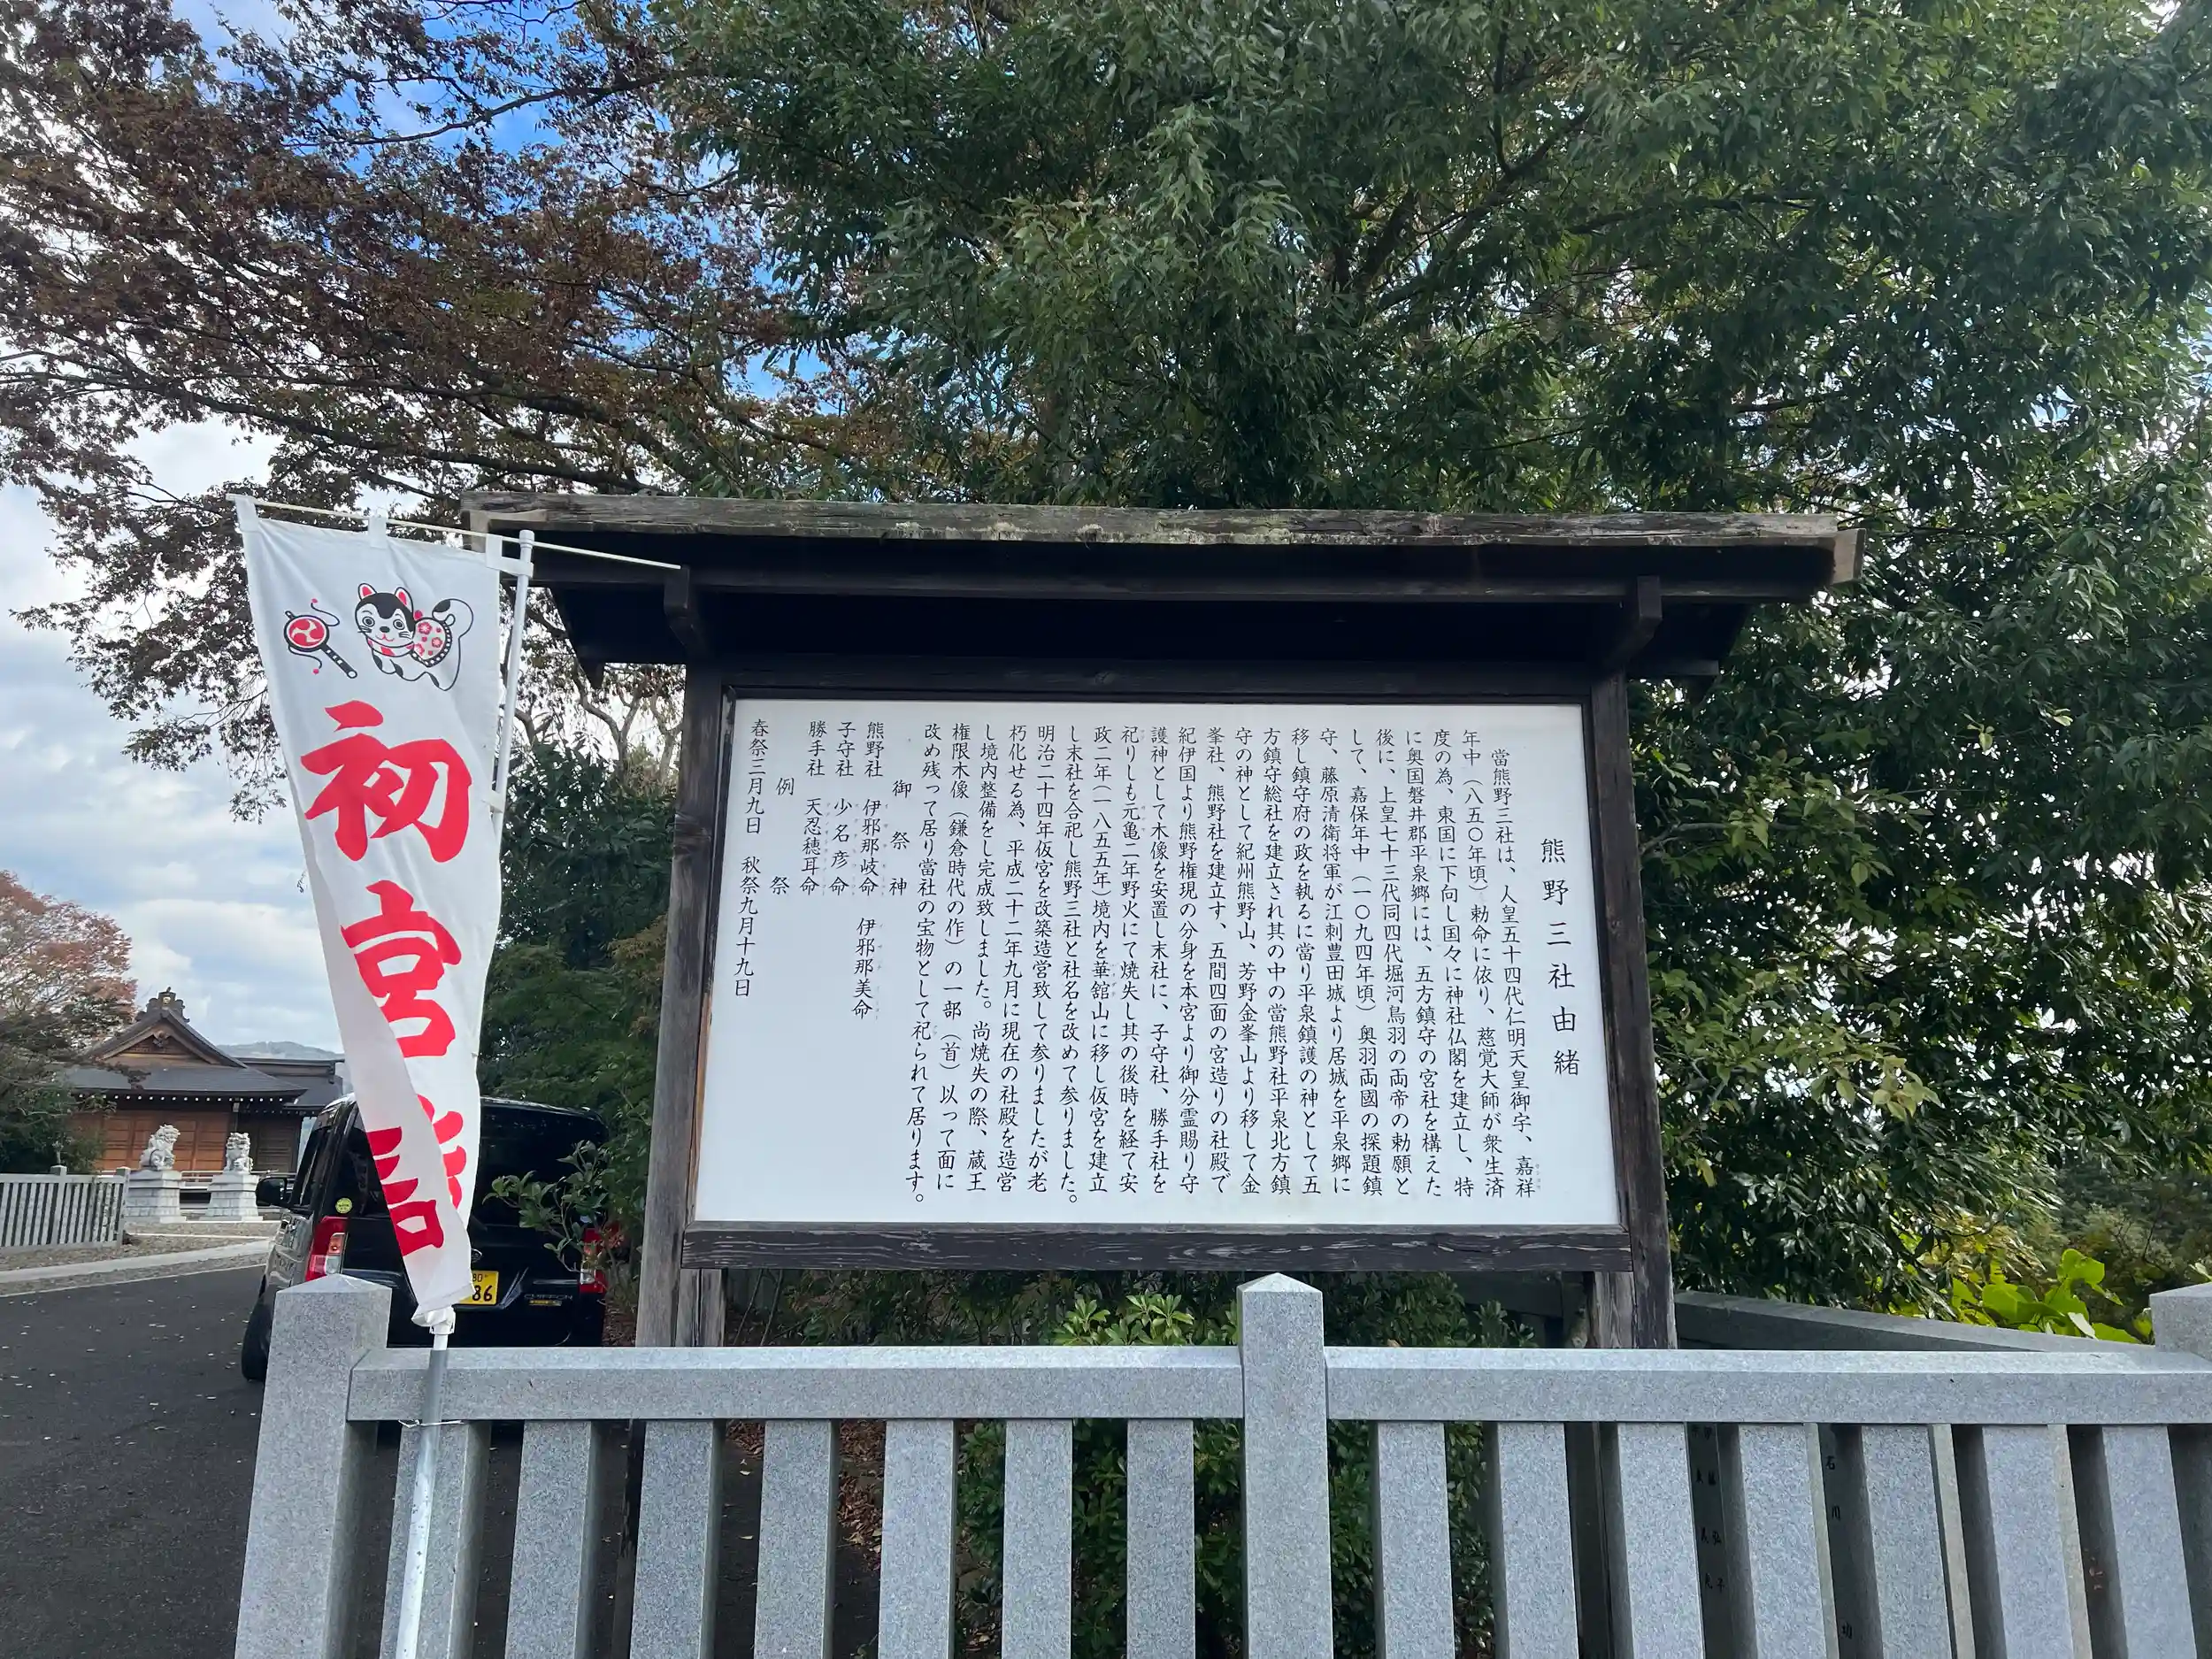 熊野三社由緒
當熊野三社は、人皇五十四代仁明天皇御宇、嘉祥
年中（八五〇年頃）勅命に依り、慈覚大師が衆生済
度の為、東国に下向し国々に神社仏閣を建立し、特
に奥国磐井郡平泉郷には、五方鎮守の宮社を構えた
後に、上皇七十三代同四代堀河鳥羽の両帝の勅願と
して、嘉保年中（一〇九四年頃）奥羽両國の探題鎮
守、藤原清衛将軍が江刺豊田城より居城を平泉郷に
移し鎮守府の政を執るに當り平泉鎮護の神として五
方鎮守総社を建立され其の中の當熊野社平泉北方鎮
守の神として紀州熊野山、芳野金峯山より移して金
峯社、熊野社を建立す、五間四面の宮造りの社殿で
紀伊国より熊野権現の分身を本宮より御分霊賜り守
護神として木像を安置し末社に、子守社、勝手社を
祀りしも元亀二年野火にて焼失し其の後時を経て安
政二年（一八五五年）境内を華舘山に移し仮宮を建立
し末社を合祀し熊野三社と社名を改めて参りました。
明治二十四年仮宮を改築造営致して参りましたが老
朽化せる為、平成二十二年九月に現在の社殿を造営
し境内整備をし完成致しました。尚焼失の際、蔵王
権限木像（鎌倉時代の作）の一部（首）以って面に
改め残って居り當社の宝物として祀られて居ります。
御祭神
熊野社 伊邪那岐命 伊邪那美命
子守社 少名彦命
勝手社 天忍穂耳命
例祭
春祭三月九日 秋祭九月十九日
初宮詣